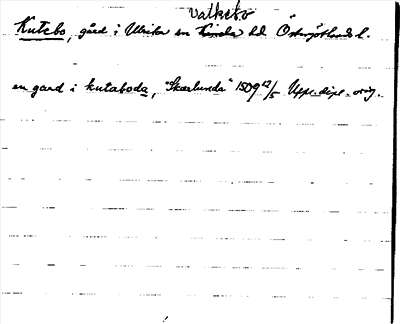 Valkebo
Kutebo, gård i Ulrika sn Kinda hd Östergötlands l.
en gard i kutaboda, "Skærlunda" 1509 12/5 Upps. dipl. orig.